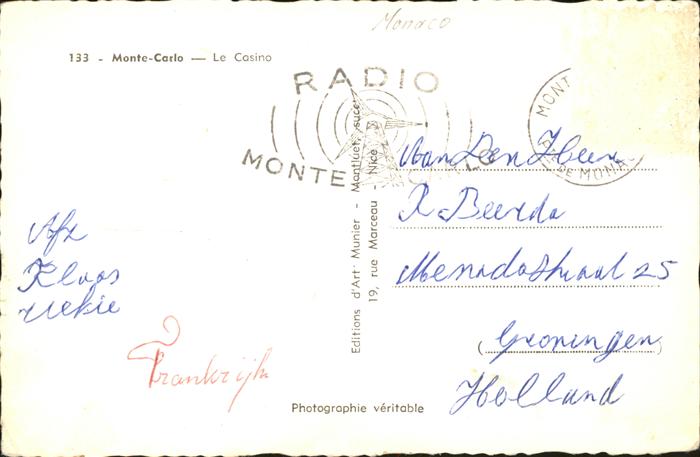 Monaco
133 - Monte-Carlo — Le Casino
RADIO
MONTE CARLO
MONT
PTE DE MONA
Editions d'Art Munier - Montluet, succr
19, rue Marceau - Nice
Aan Den Heer
R. Beerda
Menadostraat 25
Groningen
Holland
Afz
Klaas
Frankrijk
Photographie véritable